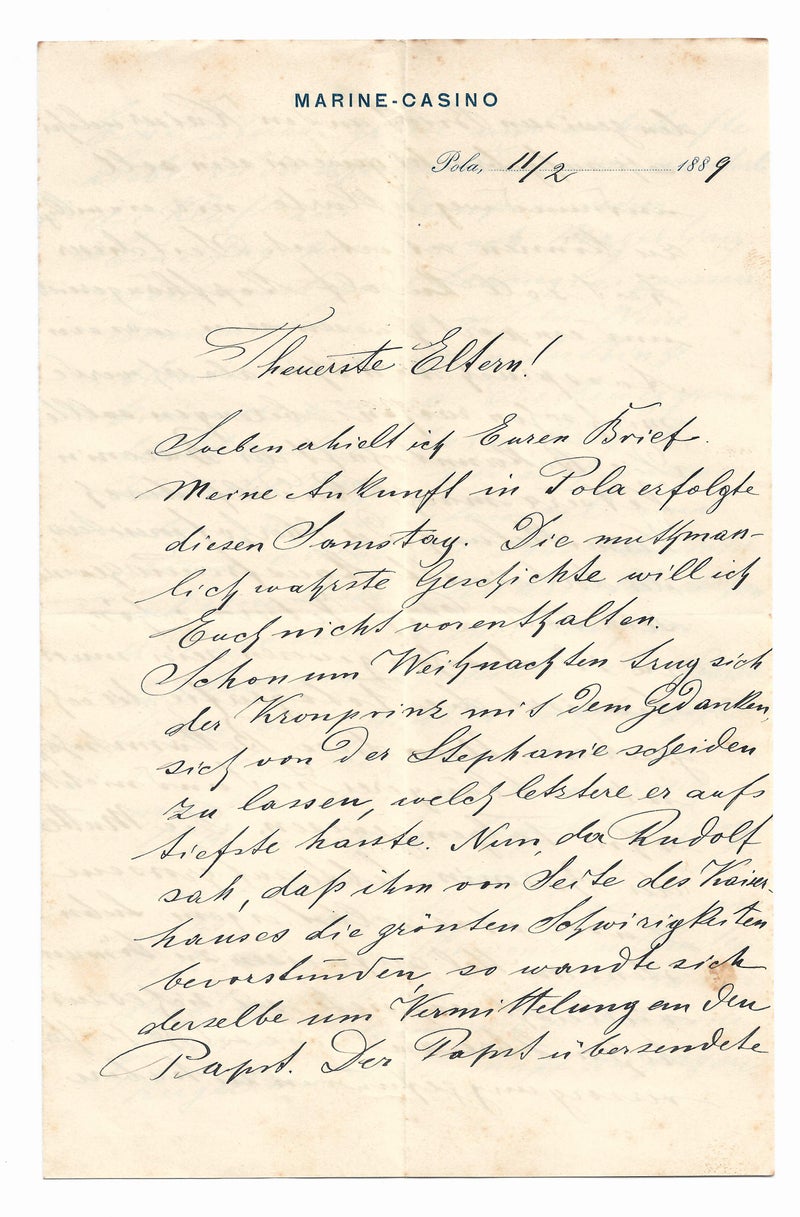 MARINE-CASINO
Pola, 11/2 1889
Theuerste Eltern!
Soeben erhielt ich Euren Brief.
Meine Ankunft in Pola erfolgte
diesen Samstag. Die muthman-
lich wahrste Geschichte will ich
Euch nicht vorenthalten.
Schon um Weihnachten trug sich
der Kronprinz mit dem Gedanken,
sich von der Stephanie scheiden
zu lassen, welch letztere er aufs
tiefste hasste. Nun, da Rudolf
sah, daß ihm von Seite des Kaiser-
hauses die größten Schwirigkeiten
bevorstünden, so wandte sich
derselbe um Vermittelung an den
Papst. Der Papst übersendete